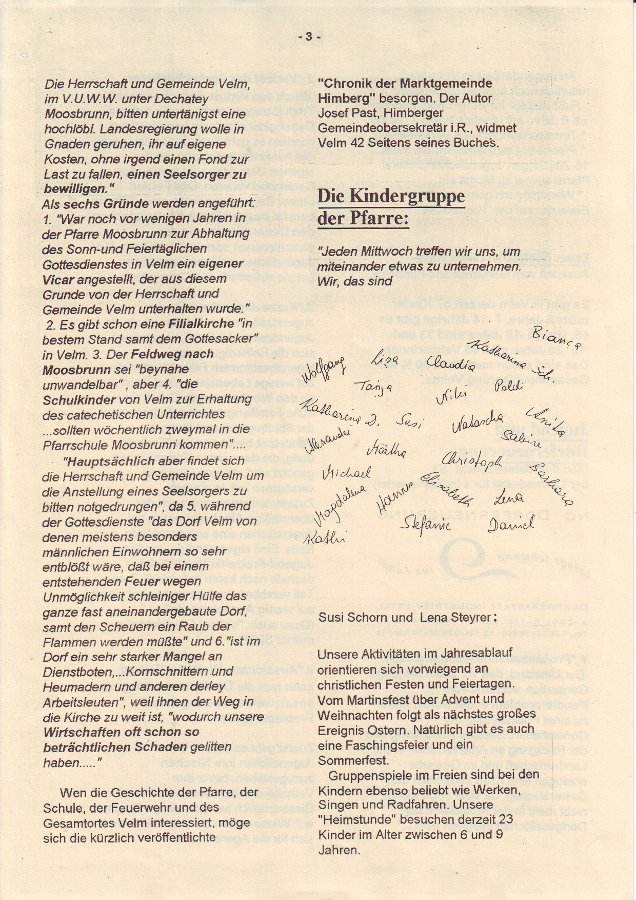 - 3 -
Die Herrschaft und Gemeinde Velm,
im V.U.W.W. unter Dechatey
Moosbrunn, bitten untertänigst eine
hochlöbl. Landesregierung wolle in
Gnaden geruhen, ihr auf eigene
Kosten, ohne irgend einen Fond zur
Last zu fallen, einen Seelsorger zu
bewilligen."
Als sechs Gründe werden angeführt:
1. "War noch vor wenigen Jahren in
der Pfarre Moosbrunn zur Abhaltung
des Sonn-und Feiertäglichen
Gottesdienstes in Velm ein eigener
Vicar angestellt, der aus diesem
Grunde von der Herrschaft und
Gemeinde Velm unterhalten wurde."
2. Es gibt schon eine Filialkirche "in
bestem Stand samt dem Gottesacker"
in Velm. 3. Der Feldweg nach
Moosbrunn sei "beynahe
unwandelbar" , aber 4. "die
Schulkinder von Velm zur Erhaltung
des catechetischen Unterrichtes
...sollten wöchentlich zweymal in die
Pfarrschule Moosbrunn kommen"....
"Hauptsächlich aber findet sich
die Herrschaft und Gemeinde Velm um
die Anstellung eines Seelsorgers zu
bitten notgedrungen", da 5. während
der Gottesdienste "das Dorf Velm von
denen meistens besonders
männlichen Einwohnern so sehr
entblößt wäre, daß bei einem
entstehenden Feuer wegen
Unmöglichkeit schleiniger Hülfe das
ganze fast aneinandergebaute Dorf,
samt den Scheuern ein Raub der
Flammen werden müßte" und 6."ist im
Dorf ein sehr starker Mangel an
Dienstboten,...Kornschnittern und
Heumadern und anderen derley
Arbeitsleuten", weil ihnen der Weg in
die Kirche zu weit ist, "wodurch unsere
Wirtschaften oft schon so
beträchtlichen Schaden gelitten
haben....."
Wen die Geschichte der Pfarre, der
Schule, der Feuerwehr und des
Gesamtortes Velm interessiert, möge
sich die kürzlich veröffentlichte
"Chronik der Marktgemeinde
Himberg" besorgen. Der Autor,
Josef Past, Himberger
Gemeindeobersekretär i.R., widmet
Velm 42 Seitens seines Buches.
Die Kindergruppe
der Pfarre:
"Jeden Mittwoch treffen wir uns, um
miteinander etwas zu unternehmen.
Wir, das sind
Bianca
Wolfgang Lisa Claudia Katharina Sch.
Tanja Niki Poldi
Katharina D. Susi Natascha Anita
Alexander Märtha Sabine
Michael Christoph Barbara
Magdalena Hannes Elisabeth Lena
Kathi Stefanie Daniel
Susi Schorn und Lena Steyrer:
Unsere Aktivitäten im Jahresablauf
orientieren sich vorwiegend an
christlichen Festen und Feiertagen.
Vom Martinsfest über Advent und
Weihnachten folgt als nächstes großes
Ereignis Ostern. Natürlich gibt es auch
eine Faschingsfeier und ein
Sommerfest.
Gruppenspiele im Freien sind bei den
Kindern ebenso beliebt wie Werken,
Singen und Radfahren. Unsere
"Heimstunde" besuchen derzeit 23
Kinder im Alter zwischen 6 und 9
Jahren.